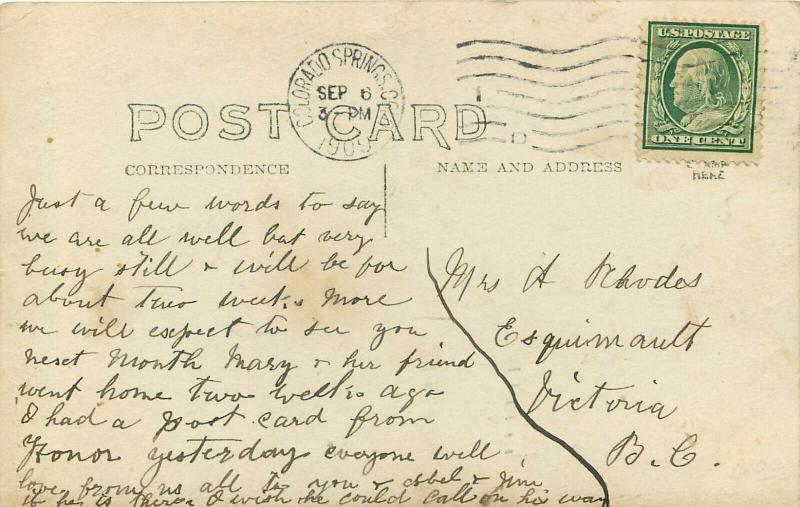 COLORADO SPRINGS, C
SEP 6
3 - PM
1909
U.S. POSTAGE
ONE CENT
POST CARD
CORRESPONDENCE
NAME AND ADDRESS
HERE
Just a few words to say
we are all well but very
busy still & will be for
about two weeks more
we will expect to see you
next month Mary & her friend
went home two weeks ago
I had a post card from
Honor yesterday everyone well
love from us all to you & & Jim
if he is there I wish he could call on his way
Mrs A Rhodes
Esquimault
Victoria
B.C.